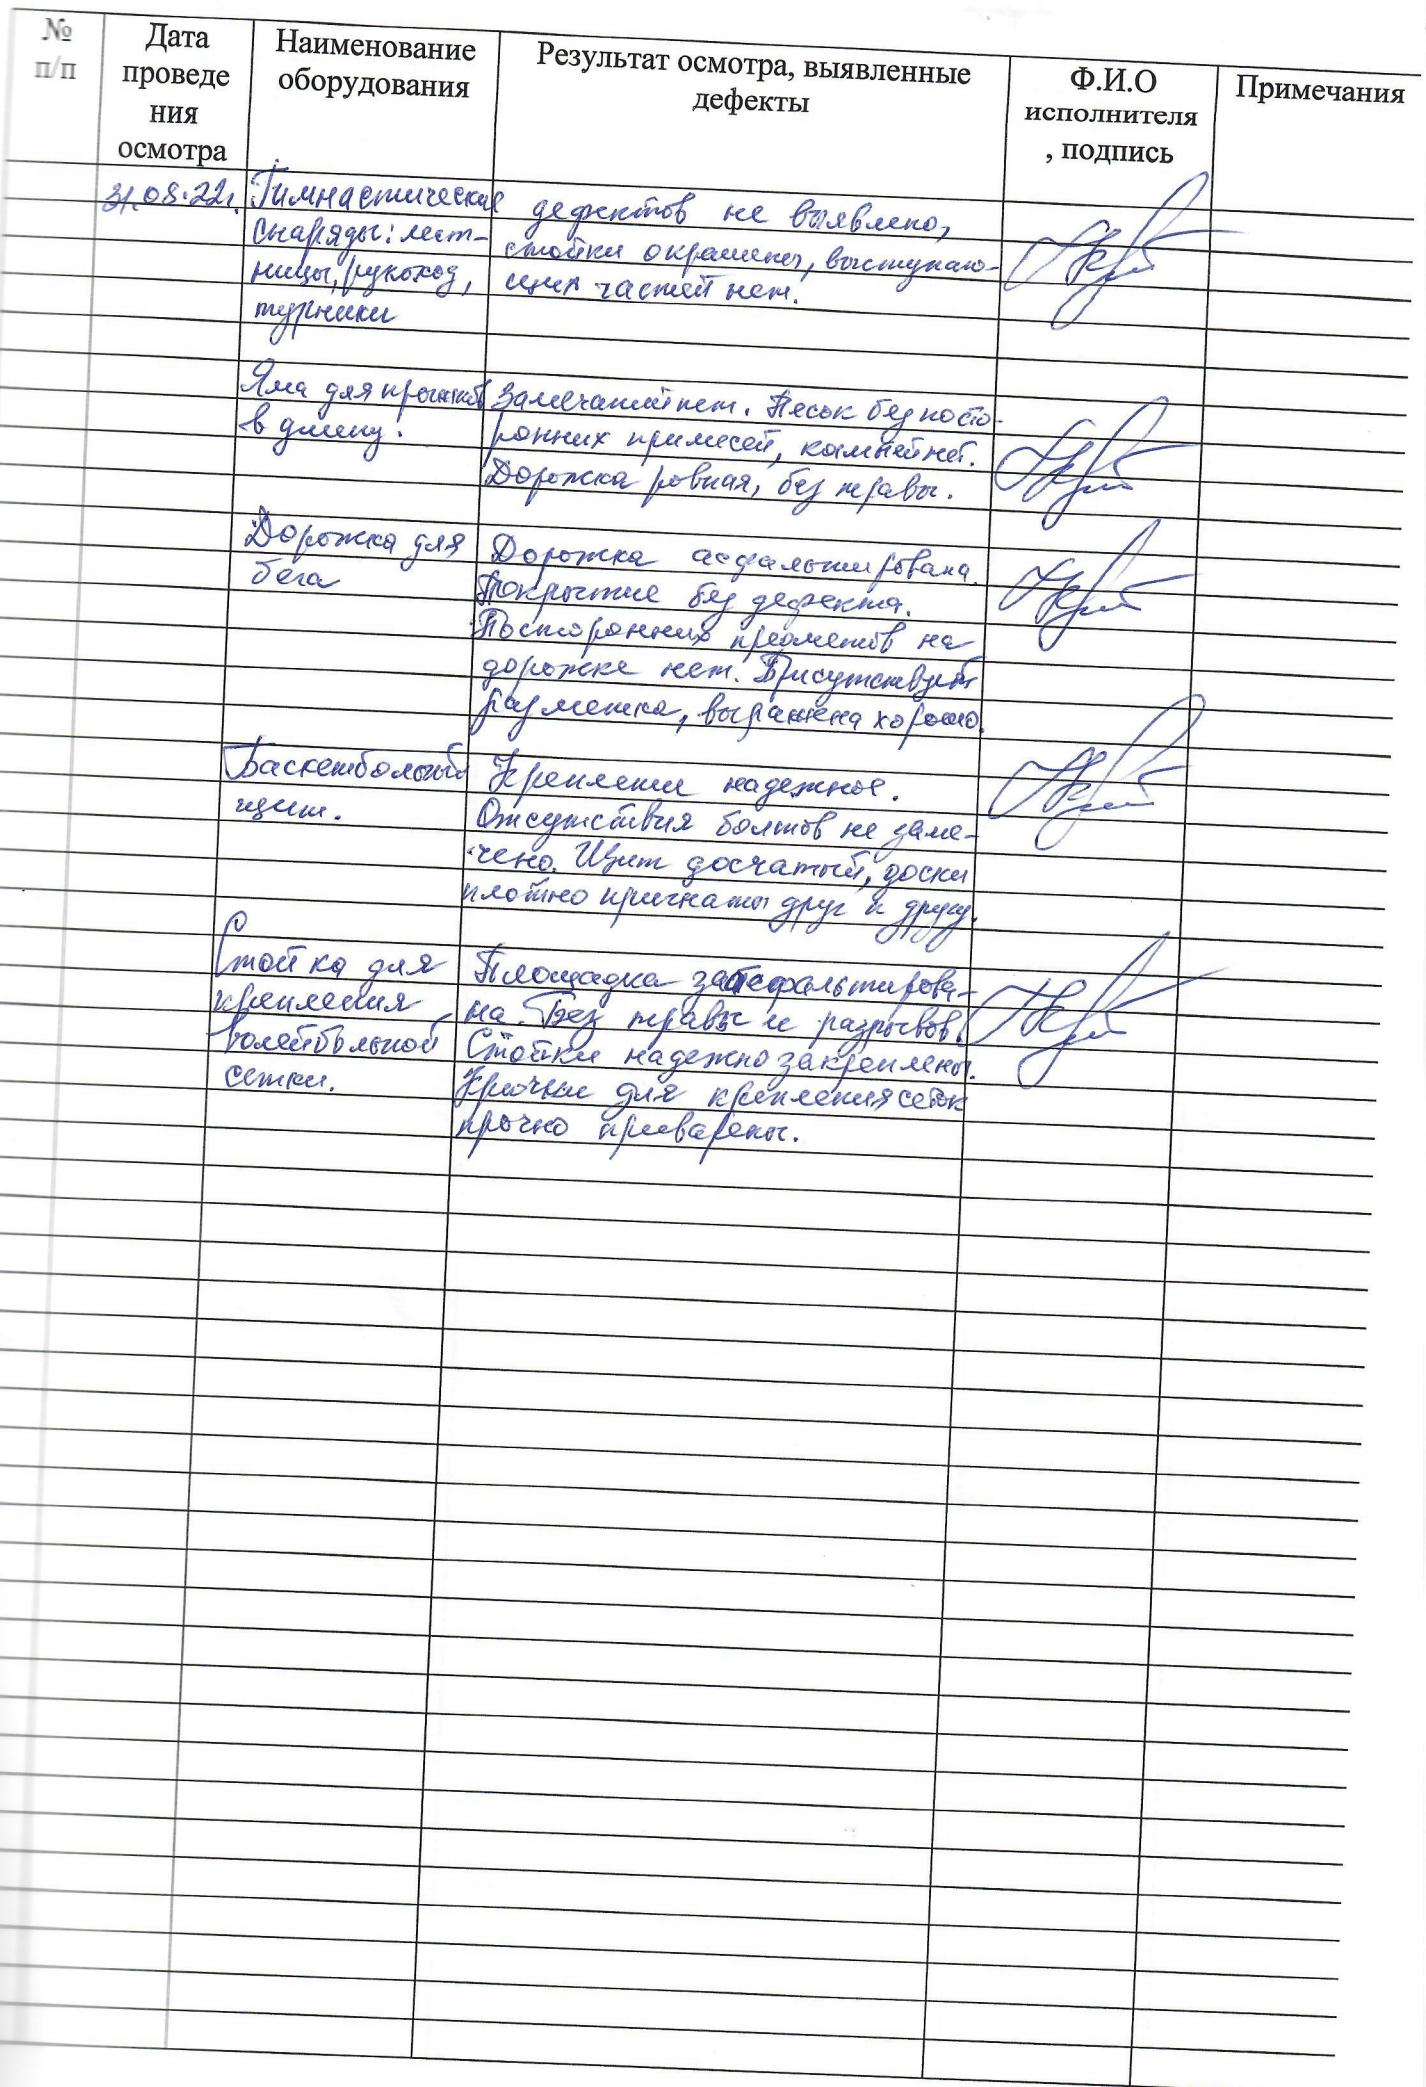 №
п/п
Дата
проведе
ния
осмотра
Наименование
оборудования
Результат осмотра, выявленные
дефекты
Ф.И.О
исполнителя
, подпись
Примечания
31.08.22г.
Гимнастические
снаряды: лест-
ницы, рукоход,
турники
дефектов не выявлено,
стойки окрашены, выступаю-
щих частей нет.
Яма для прыжков
в длину.
Замечаний нет. Песок без посто-
ронних примесей, камней нет.
Дорожка ровная, без травы.
Дорожка для
бега
Дорожка асфальтирована.
Покрытие без дефекта.
Посторонних предметов на
дорожке нет. Присутствует
разметка, выражена хорошо.
Баскетбольный
щит.
Крепление надежное.
Отсутствия болтов не заме-
чено. Щит досчатый, доски
плотно прижаты друг к другу.
Стойка для
крепления
волейбольной
сетки.
Площадка заасфальтирова-
на. Без травы и разрывов.
Стойки надежно закреплены.
Крючки для крепления сеток
прочно приварены.